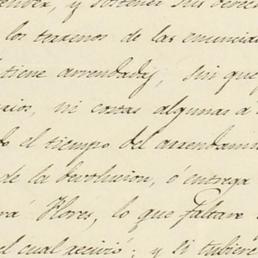 y sostener sus derec
los terrenos de las enuncia
tiene arrendads, sin que
ni costas algunas á
el tiempo del arrendami
de la devolucion, ó entrega
rá Flores, lo que faltare
el cual recivió; y si tubiere